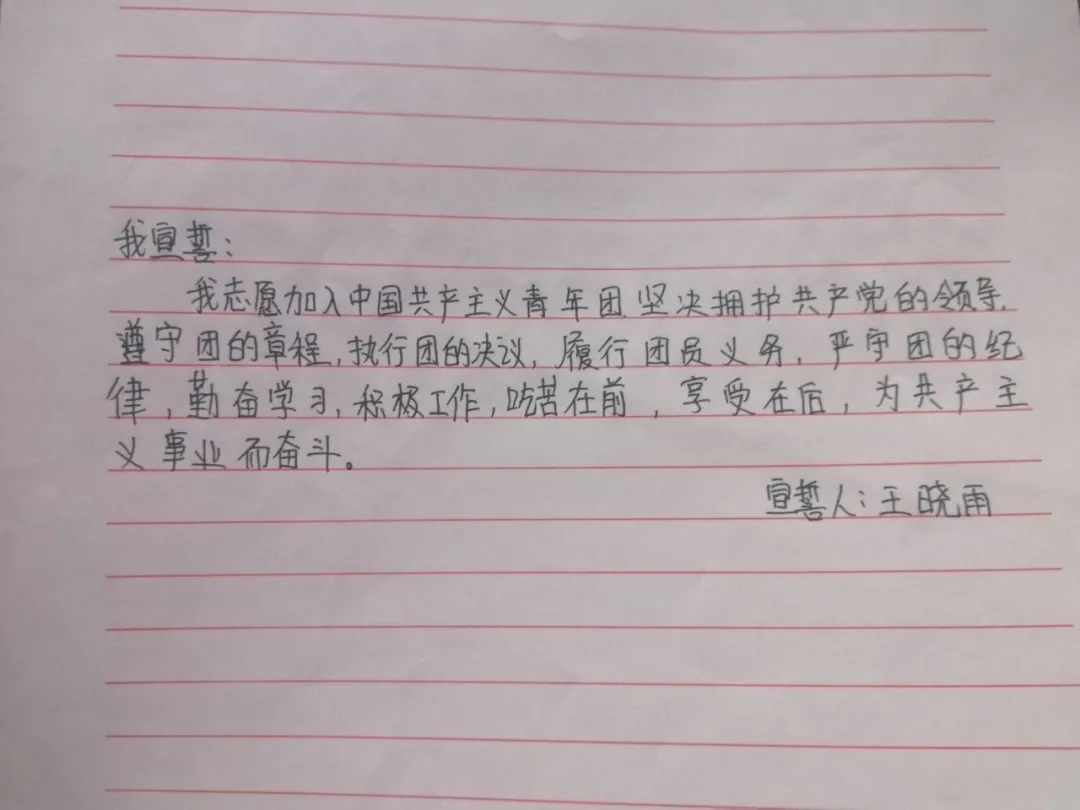 我宣誓：
我志愿加入中国共产主义青年团.坚决拥护共产党的领导.
遵守团的章程,执行团的决议,履行团员义务,严守团的纪
律,勤奋学习,积极工作,吃苦在前,享受在后,为共产主
义事业而奋斗。
宣誓人：王晓雨